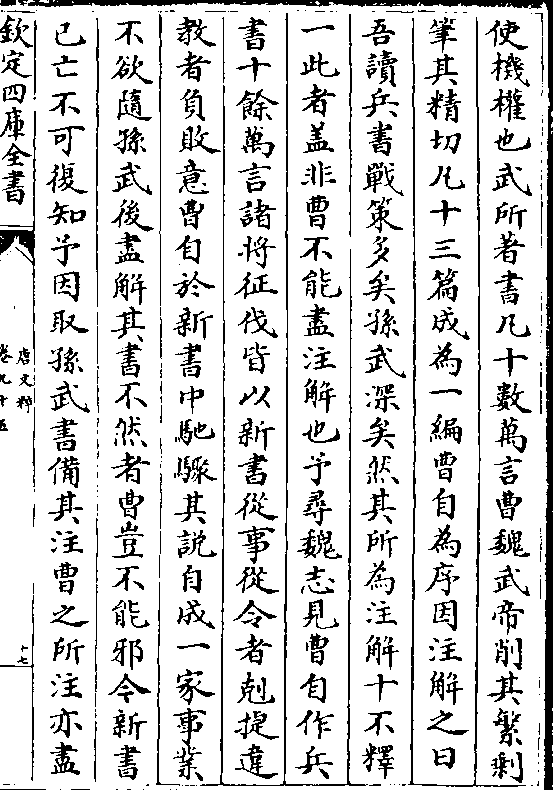 使機權也武所著書凡十數萬言曹魏武帝削其繁剩
筆其精切凡十三篇成為一編曹自為序因注解之曰
吾讀兵書戰策多矣孫武深矣然其所為注解十不釋
一此者盖非曹不能盡注解也予尋魏志見曹自作兵
書十餘萬言諸將征伐皆以新書從事從令者剋捷違
教者負敗意曹自於新書中馳驟其說自成一家事業
不欲隨孫武後盡解其書不然者曹豈不能邪今新書
已亡不可復知予因取孫武書備其注曹之所注亦盡
欽定四庫全書
唐文粹
卷九十五
十七